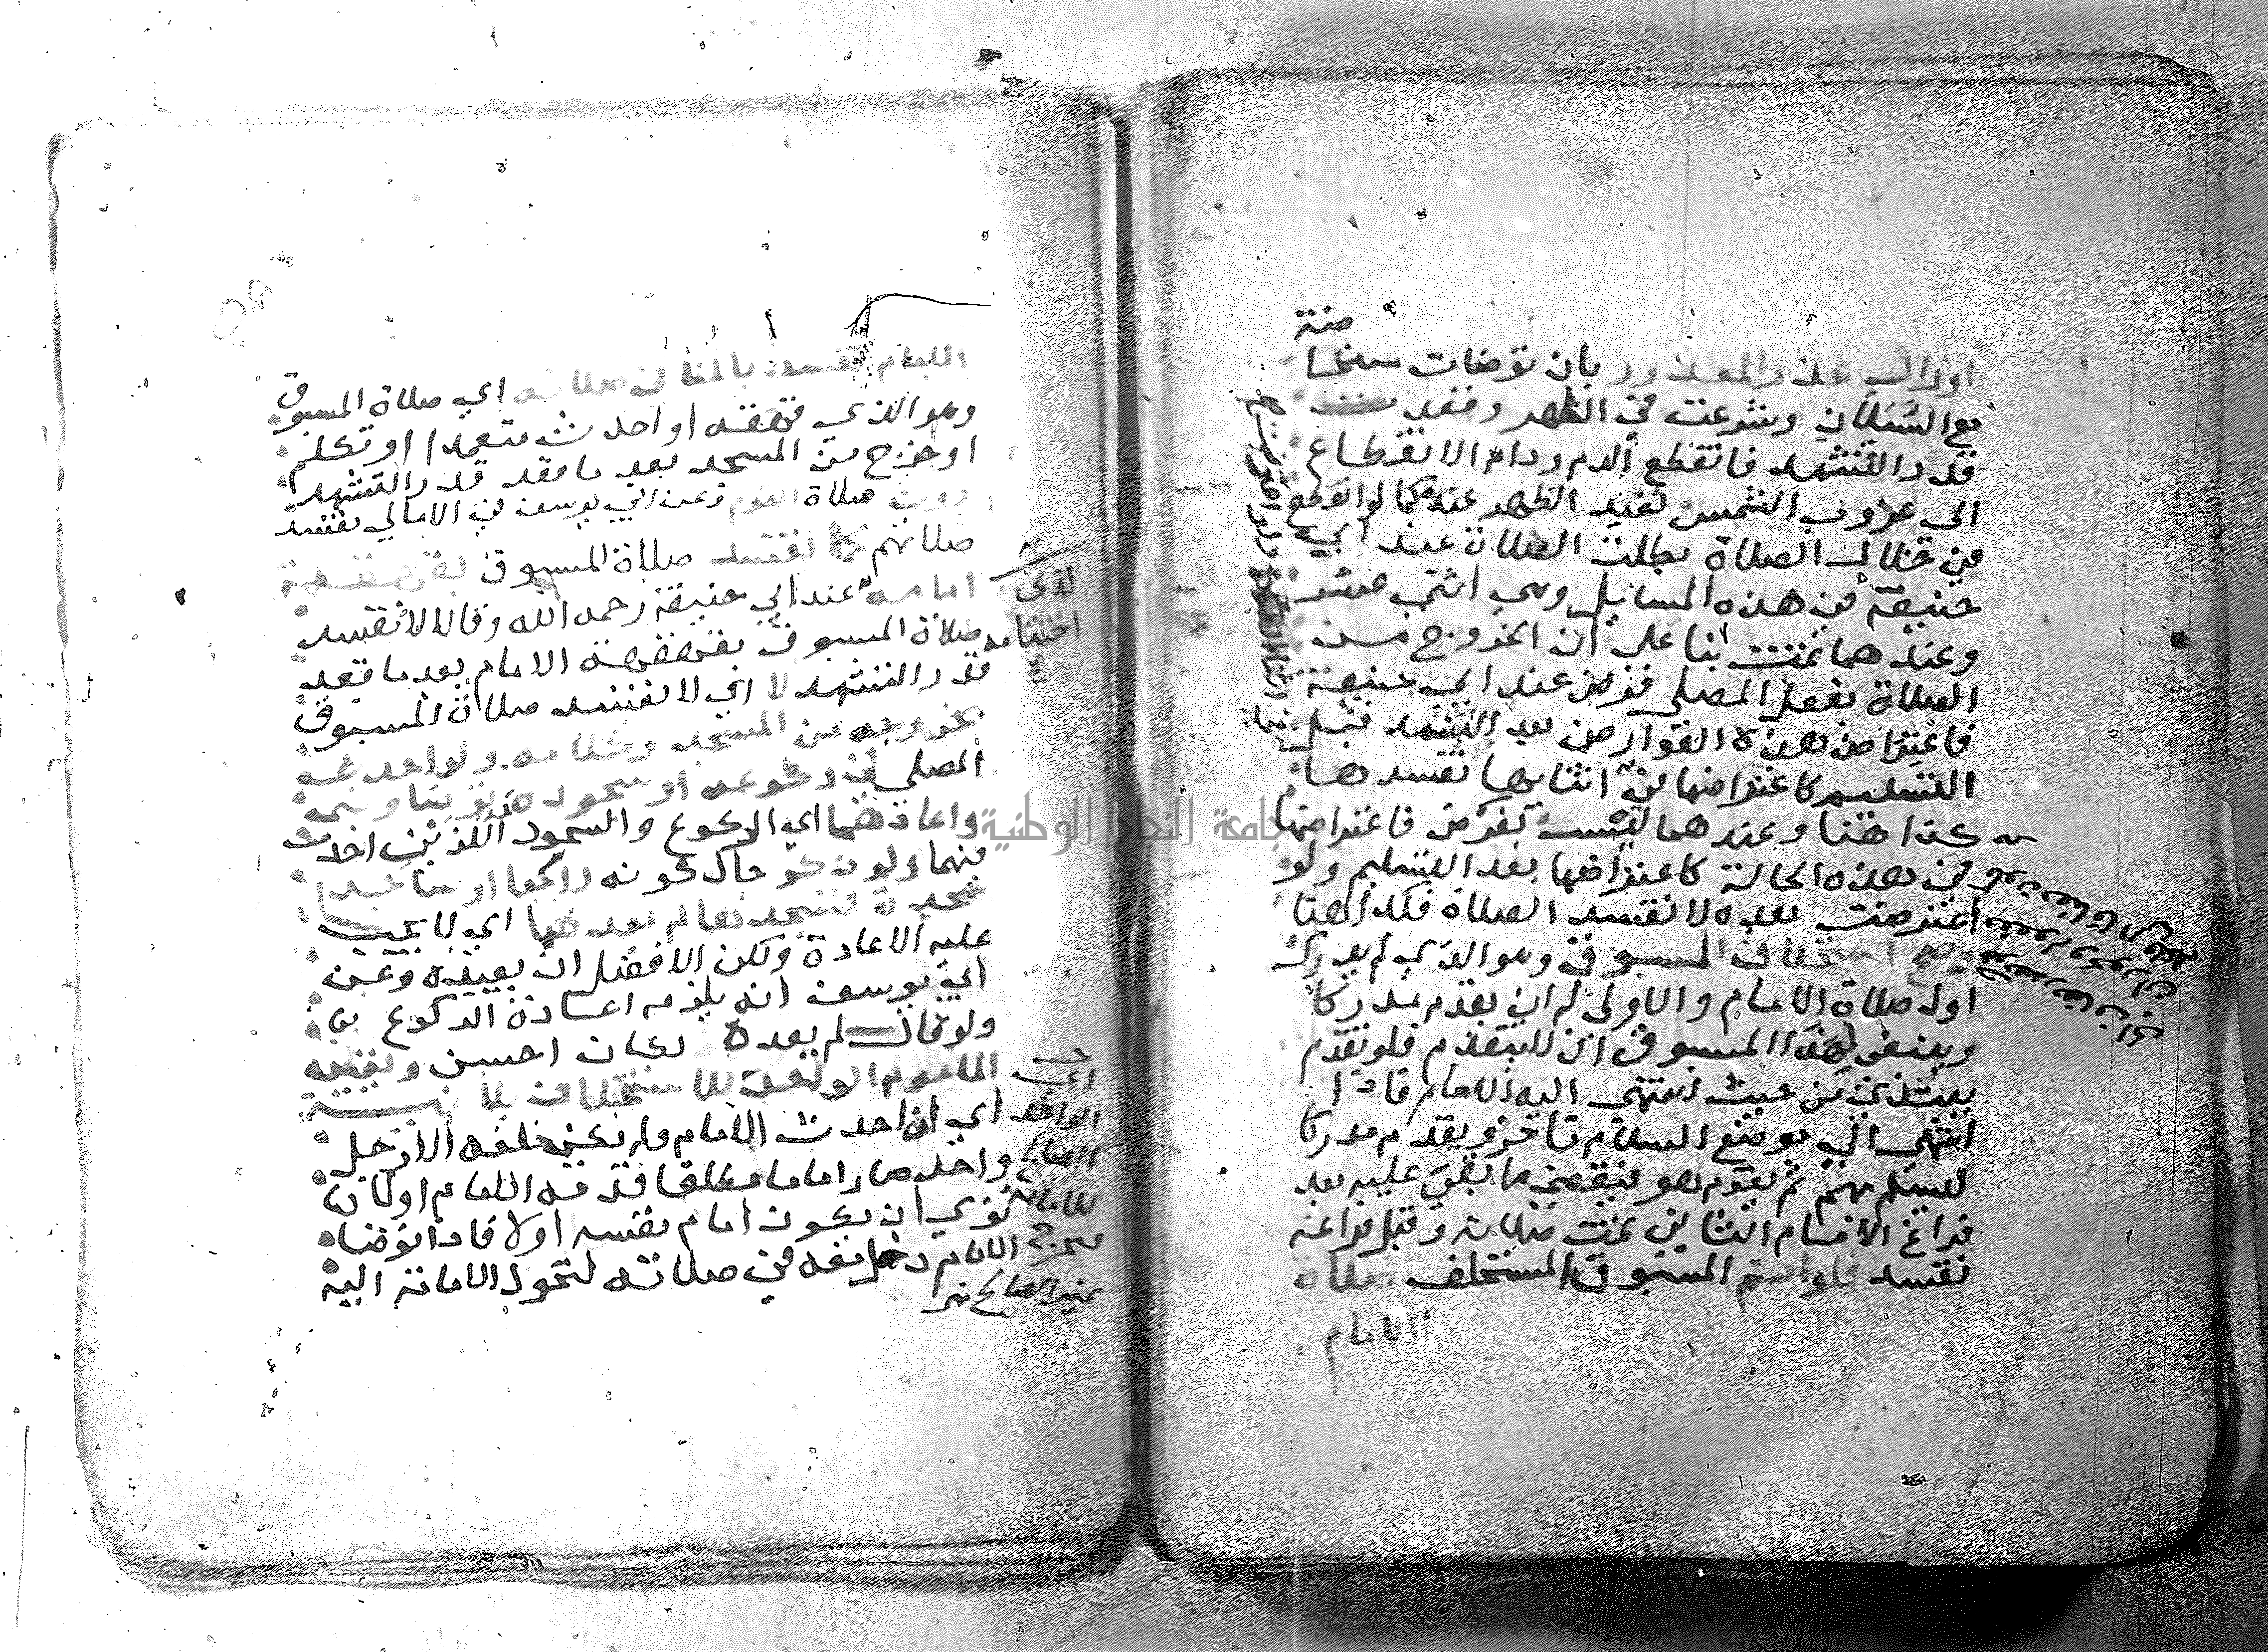 منة
او زال عذر المعذور بان توضات مستحا
مع السيلان وشرعت في الظهر وقعدت
قدر التشهد فانقطع الدم ودام الانقطاع
الى غروب الشمس تعيد الظهر عنده كما لو انقطع
في خلال الصلاة بطلت الصلاة عند ابي
حنيفة في هذه المسايل وهي اثني عشر
وعندهما تمت بنا على ان الخروج من
الصلاة بفعل المصلي فرض عند ابي حنيفة
فاعتراض هذه العوارض بعد التشهد قبل
التسليم كاعتراضها في اثنايها تفسدها
كذا هنا وعندهما ليست بفرض فاعتراضها
في هذه الحالة كاعتراضها بعد التسليم ولو
اعترضت بعده لا تفسد الصلاة فكذا هنا
وصح استخلاف المسبوق وهو الذي لم يدرك
اول صلاة الامام والاولى له ان يقدم مدركا
وينبغي لهذا المسبوق ان لا يتقدم فلو تقدم
يبتدئ من حيث انتهى اليه الامام فاذا
انتهى الي موضع السلام تاخر ويقدم مدركا
ليسلم بهم ثم يقوم هو فيقضي ما بقي عليه بعد
فراغ الامام الثاني تمت صلاته وقبل فراغه
تفسد فلو اتم المسبوق المستخلف صلاة
الامام
جامعة النجاح الوطنية
الامام تفسد بالمنافي صلاته اي صلاة المسبوق
وهو الذي قهقه او احدث متعمدا او تكلم
او خرج من المسجد بعد ما قعد قدر التشهد
دون صلاة القوم وعن ابي يوسف في الامالي تفسد
صلاتهم كما تفسد صلاة المسبوق بقهقهة
امامه عند ابي حنيفة رحمه الله وقالا لا تفسد
لدى
اختتامه
صلاة المسبوق بقهقهة الامام بعد ما قعد
قدر التشهد لا اي لا تفسد صلاة المسبوق
بخروجه من المسجد وكلامه ولو احدث
المصلي في ركوعه او سجوده توضا وبنى
واعادهما اي الركوع والسجود اللذين احدث
فيهما ولو ذكر حال كونه راكعا او ساجدا
سجدة فسجدها لم يعدهما اي لا يجب
عليه الاعادة ولكن الافضل ان يعيده وعن
ابي يوسف انه يلزمه اعادة الركوع
ولو قال لم يعده لكان احسن وتعين
الماموم الواحد للاستخلاف بلا نية
اي ان احدث الامام ولم يكن خلفه الا رجل
واحد صار اماما مطلقا قدمه الامام او لا
نوي ان يكون امام نفسه او لا فاذا توضا
الامام دخل معه في صلاته لتحول الامامة اليه
اي
الواحد
الصالح
للامامة
فخرج
غير الصالح لها